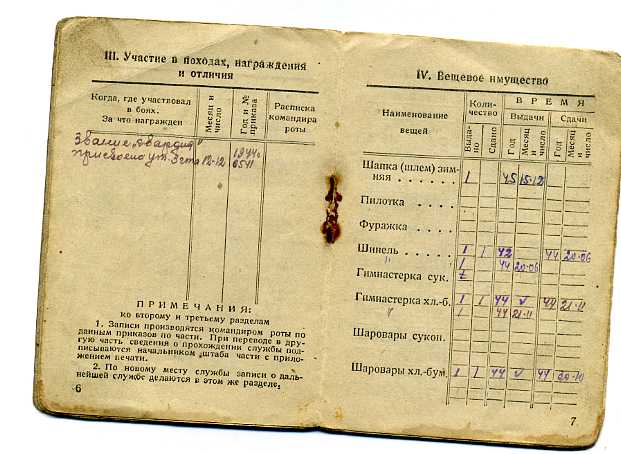 III. Участие в походах, награждения
и отличия
Когда, где участвовал
в боях.
За что награжден
Месяц и
число
Год и №
приказа
Расписка
командира
роты
Звание „Гвардия"
присвоено 12-12 1944
0511
ПРИМЕЧАНИЯ:
ко второму и третьему разделам
1. Записи производятся командиром роты по
данным приказов по части. При переводе в дру-
гую часть сведения о прохождении службы под-
писываются начальником штаба части с прило-
жением печати.
2. По новому месту службы записи о даль-
нейшей службе делаются в этом же разделе.
6
IV. Вещевое имущество
Наименование
вещей
Коли-
чество
ВРЕМЯ
Выдачи
Сдачи
Выда-
но
Сдано
Год
Месяц
и
число
Год
Месяц
и
число
Шапка (шлем) зим-
няя . . . . . . 1 45 15·12
Пилотка . . . . .
Фуражка . . . . .
Шинель . . . . . 1 1 42 44 20·06
" 1 44 20·06
Гимнастерка сук.
Гимнастерка хл.-б. 1 1 44 v 44 21·11
" 1 44 21·11
Шаровары сукон.
Шаровары хл.-бум. 1 1 44 v 44 20·10
7